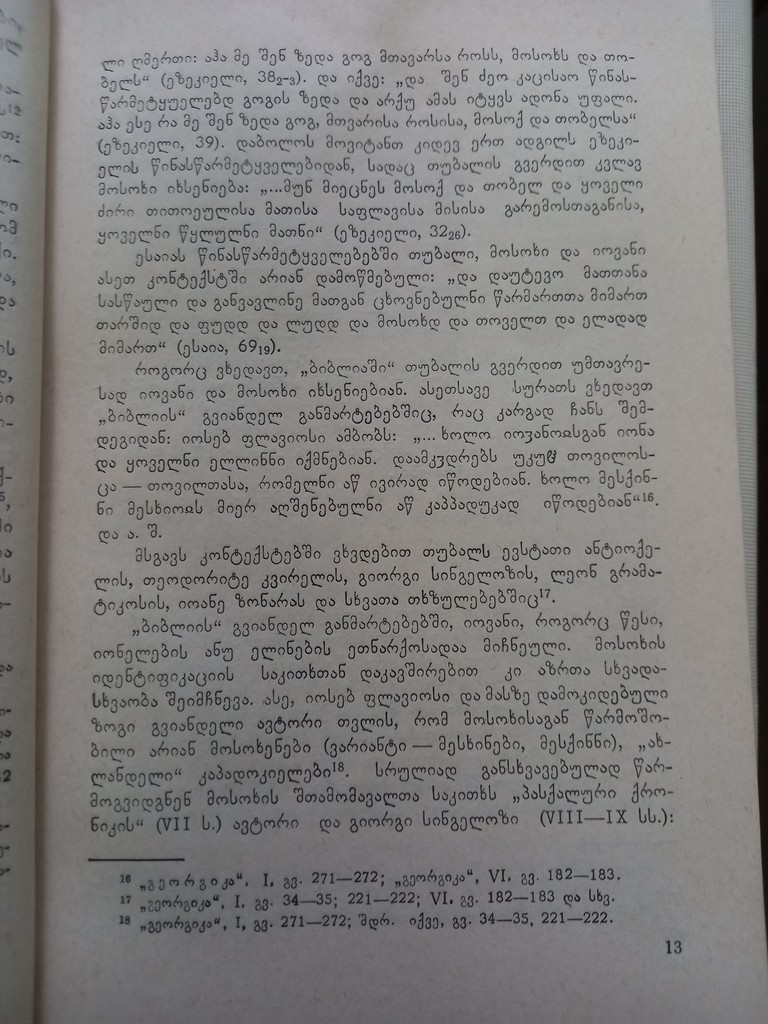 ლი ღმერთი: აჰა მე შენ ზედა გოგ მთავარსა როსს, მოსოხს და თო-
ბელს“ (ეზეკიელი, 38₂₋₃). და იქვე: „და შენ ძეო კაცისაო წინას-
წარმეტყუელებდ გოგის ზედა და არქუ ამას იტყვს ადონა უფალი.
აჰა ესე რა მე შენ ზედა გოგ, მთვარისა როსისა, მოსოქ და თობელსა“
(ეზეკიელი, 39). დაბოლოს მოვიტანთ კიდევ ერთ ადგილს ეზეკი-
ელის წინასწარმეტყველებიდან, სადაც თუბალის გვერდით კვლავ
მოსოხი იხსენიება: „...მუნ მიეცნეს მოსოქ და თობელ და ყოველი
ძირი თითოეულისა მათისა საფლავისა მისისა გარემოსთაგანისა,
ყოველნი წყლულნი მათნი“ (ეზეკიელი, 32₂₆).
ესაიას წინასწარმეტყველებებში თუბალი, მოსოხი და იოვანი
ასეთ კონტექსტში არიან დამოწმებული: „და დაუტევო მათთანა
სასწაული და განვავლინე მათგან ცხოვნებულნი წარმართთა მიმართ
თარშიდ და ფუდდ და ლუდდ და მოსოხდ და თოველთ და ელადად
მიმართ“ (ესაია, 69₁₉).
როგორც ვხედავთ, „ბიბლიაში“ თუბალის გვერდით უმთავრე-
სად იოვანი და მოსოხი იხსენიებიან. ასეთსავე სურათს ვხედავთ
„ბიბლიის“ გვიანდელ განმარტებებშიც, რაც კარგად ჩანს შემ-
დეგიდან: იოსებ ფლავიოსი ამბობს: „... ხოლო იოჳანოჲსგან იონა
და ყოველნი ელლინნი იქმნებიან. დაამკჳდრებს უკუჱ თოვილოს-
ცა — თოვილთასა, რომელნი აწ ივირად იწოდებიან. ხოლო მესქინ-
ნი მესხიოჲს მიერ აღშენებულნი აწ კაპპადუკად იწოდებიან“¹⁶.
და ა. შ.
მსგავს კონტექსტებში ვხვდებით თუბალს ევსტათი ანტიოქე-
ლის, თეოდორიტე კვირელის, გიორგი სინგელოზის, ლეონ გრამა-
ტიკოსის, იოანე ზონარას და სხვათა თხზულებებშიც¹⁷.
„ბიბლიის“ გვიანდელ განმარტებებში, იოვანი, როგორც წესი,
იონელების ანუ ელინების ეთნარქოსადაა მიჩნეული. მოსოხის
იდენტიფიკაციის საკითხთან დაკავშირებით კი აზრთა სხვადა-
სხვაობა შეიმჩნევა. ასე, იოსებ ფლავიოსი და მასზე დამოკიდებული
ზოგი გვიანდელი ავტორი თვლის, რომ მოსოხისაგან წარმოშო-
ბილი არიან მოსოხენები (ვარიანტი — მესხინები, მესქინნი), „ახ-
ლანდელი“ კაპადოკიელები¹⁸. სრულიად განსხვავებულად წარ-
მოგვიდგნენ მოსოხის შთამომავალთა საკითხს „პასქალური ქრო-
ნიკის“ (VII ს.) ავტორი და გიორგი სინგელოზი (VIII—IX სს.):
¹⁶ „გეორგიკა“, I, გვ. 271—272; „გეორგიკა“, VI, გვ. 182—183.
¹⁷ „გეორგიკა“, I, გვ. 34—35; 221—222; VI, გვ. 182—183 და სხვ.
¹⁸ „გეორგიკა“, I, გვ. 271—272; შდრ. იქვე, გვ. 34—35, 221—222.
13